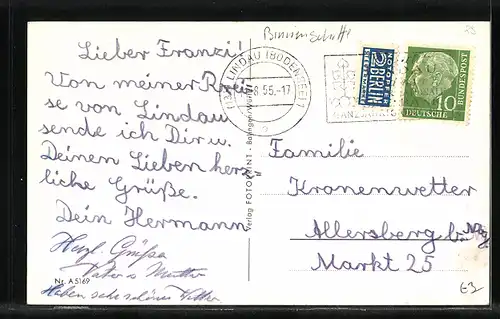 Lieber Franzi!
Von meiner Rei
se von Lindau
sende ich Dir u.
Deinen Lieben herz
liche Grüße.
Dein Hermann
Herzl. Grüße
Vater u Mutter
Haben sehr schönes Wetter
Nr. A 5169
Verlag FOTOPRINT
LINDAU (BODENSEE)
8.55.-17
NOTOPFER
2 BERLIN
STEUERMARKE
DEUTSCHE
BUNDESPOST
10
Familie
Kronenwetter
Allersberg b. Nbg.
Markt 25